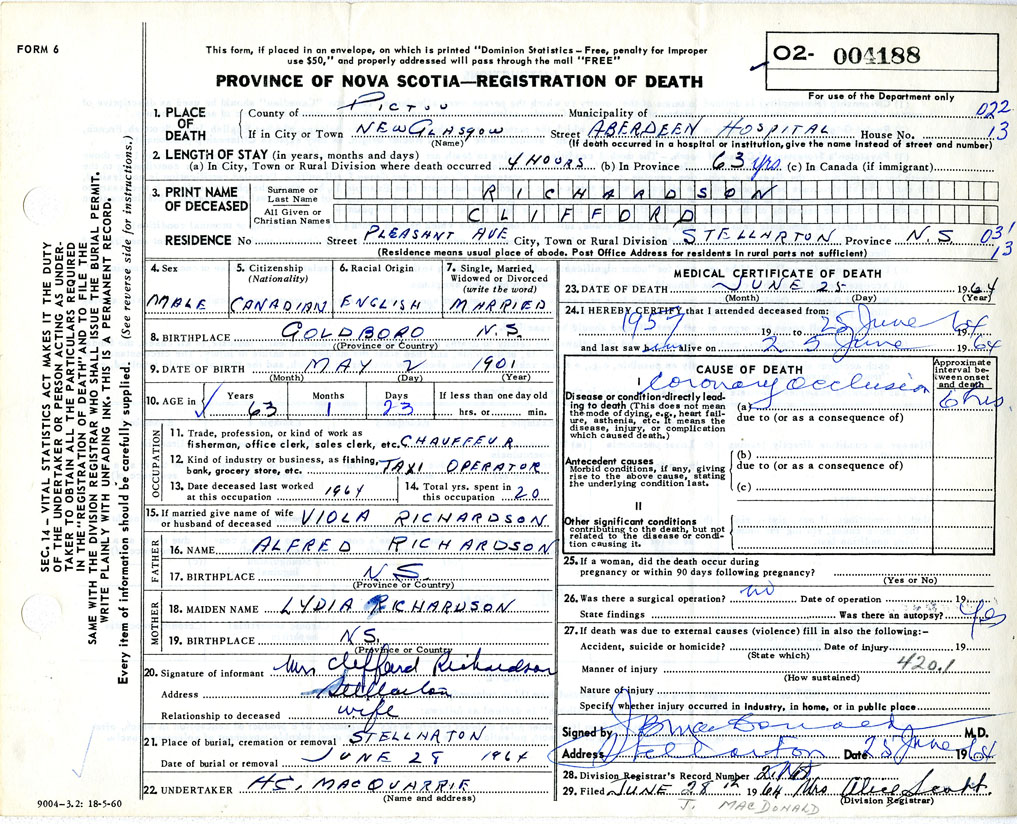 FORM 6
This form, if placed in an envelope, on which is printed "Dominion Statistics – Free, penalty for improper
use $50," and properly addressed will pass through the mail "FREE"
PROVINCE OF NOVA SCOTIA—REGISTRATION OF DEATH
O2- 004188
For use of the Department only
1. PLACE OF DEATH
County of PICTOU Municipality of 022
If in City or Town NEW GLASGOW Street ABERDEEN HOSPITAL House No. 13
(Name) (If death occurred in a hospital or institution, give the name instead of street and number)
2. LENGTH OF STAY (in years, months and days)
(a) In City, Town or Rural Division where death occurred 4 HOURS (b) In Province 63 yrs (c) In Canada (if immigrant)
3. PRINT NAME OF DECEASED
Surname or Last Name RICHARDSON
All Given or Christian Names CLIFFORD
RESIDENCE No Street PLEASANT AVE City, Town or Rural Division STELLARTON Province N.S. 031
13
(Residence means usual place of abode. Post Office Address for residents in rural parts not sufficient)
4. Sex
MALE
5. Citizenship (Nationality)
CANADIAN
6. Racial Origin
ENGLISH
7. Single, Married, Widowed or Divorced (write the word)
MARRIED
8. BIRTHPLACE GOLDBORO N.S.
(Province or Country)
9. DATE OF BIRTH MAY 2 1901
(Month) (Day) (Year)
10. AGE in Years Months Days If less than one day old
63 1 23 hrs. or min.
OCCUPATION
11. Trade, profession, or kind of work as
fisherman, office clerk, sales clerk, etc. CHAUFFEUR
12. Kind of industry or business, as fishing,
bank, grocery store, etc. TAXI OPERATOR
13. Date deceased last worked at this occupation 1964
14. Total yrs. spent in this occupation 20
15. If married give name of wife
or husband of deceased VIOLA RICHARDSON
FATHER
16. NAME ALFRED RICHARDSON
17. BIRTHPLACE N.S.
(Province or Country)
MOTHER
18. MAIDEN NAME LYDIA RICHARDSON
19. BIRTHPLACE N.S.
(Province or Country)
20. Signature of informant Mrs Clifford Richardson
Address Stellarton
Relationship to deceased wife
21. Place of burial, cremation or removal STELLARTON
Date of burial or removal JUNE 28 1964
22. UNDERTAKER H.C. MACQUARRIE
(Name and address)
9004–3.2: 18-5-60
MEDICAL CERTIFICATE OF DEATH
23. DATE OF DEATH JUNE 25 1964
(Month) (Day) (Year)
24. I HEREBY CERTIFY that I attended deceased from:
1957 19 to 25 June 64
and last saw him alive on 25 June 1964
CAUSE OF DEATH
Approximate interval between onset and death
I
Disease or condition directly leading to death (This does not mean the mode of dying, e.g., heart failure, asthenia, etc. It means the disease, injury, or complication which caused death.)
(a) Coronary Occlusion 6 hrs.
due to (or as a consequence of)
Antecedent causes
Morbid conditions, if any, giving rise to the above cause, stating the underlying condition last.
(b)
due to (or as a consequence of)
(c)
II
Other significant conditions
contributing to the death, but not related to the disease or condition causing it.
25. If a woman, did the death occur during
pregnancy or within 90 days following pregnancy?
(Yes or No)
26. Was there a surgical operation? no Date of operation 19
State findings Was there an autopsy? Yes
27. If death was due to external causes (violence) fill in also the following:–
Accident, suicide or homicide? Date of injury 19
(State which)
Manner of injury 420.1
(How sustained)
Nature of injury
Specify whether injury occurred in industry, in home, or in public place
Signed by J B MacDonald M.D.
Address Stellarton Date 25 June 1964
28. Division Registrar's Record Number
29. Filed JUNE 28th 1964 Mrs Alice Scott
(Division Registrar)
J. MACDONALD
SEC. 14 – VITAL STATISTICS ACT MAKES IT THE DUTY
OF THE UNDERTAKER OR PERSON ACTING AS UNDER-
TAKER TO OBTAIN ALL THE PARTICULARS REQUIRED
IN THE "REGISTRATION OF DEATH" AND TO FILE THE
SAME WITH THE DIVISION REGISTRAR WHO SHALL ISSUE THE BURIAL PERMIT.
WRITE PLAINLY WITH UNFADING INK. THIS IS A PERMANENT RECORD.
Every item of information should be carefully supplied. (See reverse side for instructions.)